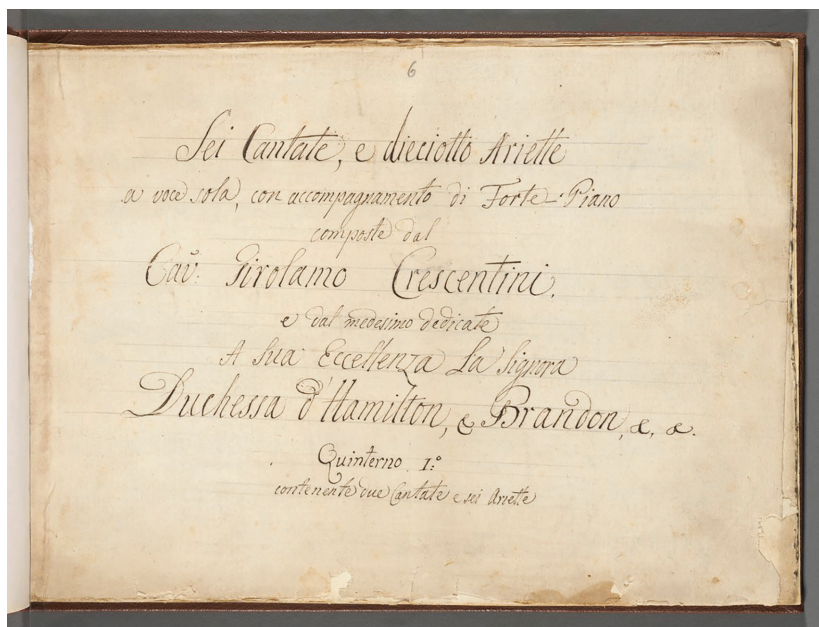 6
Sei Cantate, e dieciotto Ariette
a voce sola, con accompagnamento di Forte-Piano
composte dal
Cav: Girolamo Crescentini.
e dal medesimo dedicate
A Sua Eccellenza La Signora
Duchessa d'Hamilton, & Brandon, &. &.
Quinterno 1:o
contenente due Cantate e sei Ariette